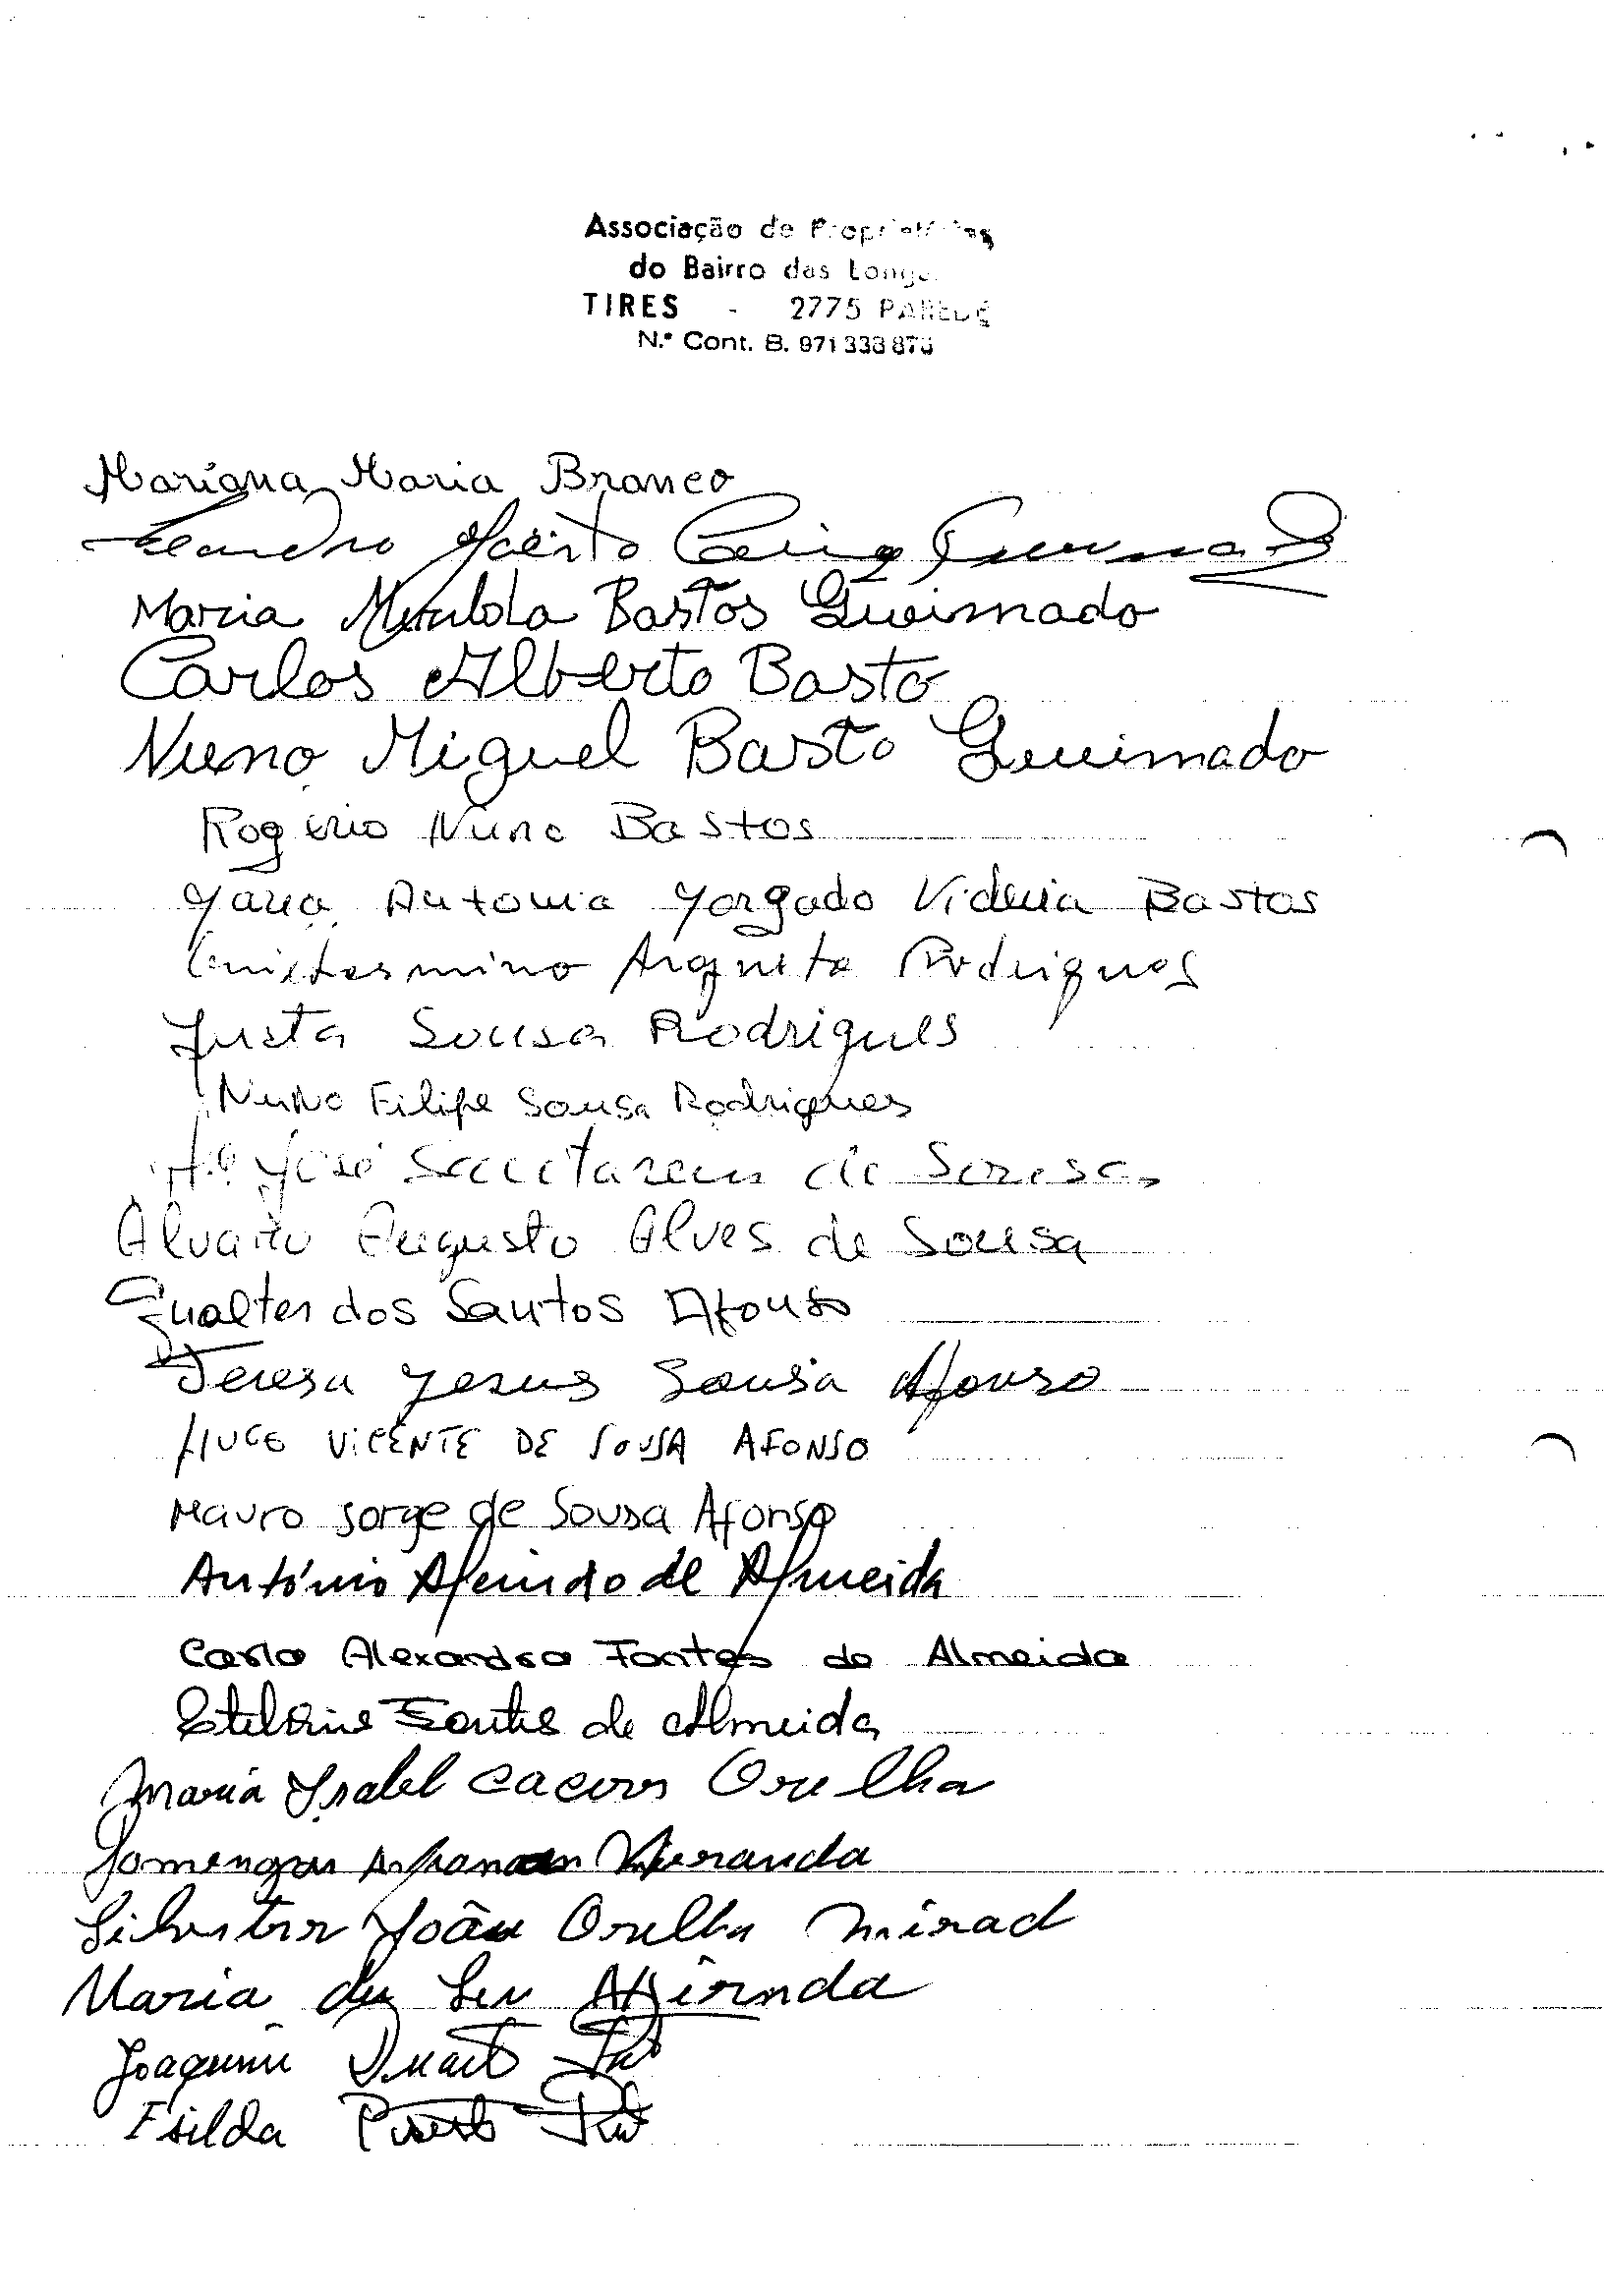 Associação de Proprietários
do Bairro das
TIRES - 2775 PAREDE
N.º Cont. B. 971 333 87
Mariana Maria Branco
Leandro
Maria Bastos Gueimado
Carlos Alberto Basto
Nuno Miguel Basto Gueimado
Rogério Nuno Bastos
Maria Antonia Morgado Videira Bastos
Rodrigues
Justa Sousa Rodrigues
Nuno Filipe Sousa Rodrigues
José de Sousa
Alvaro Augusto Alves de Sousa
Gualter dos Santos Afonso
Teresa Jesus Sousa Afonso
HUGO VICENTE DE SOUSA AFONSO
Mauro Jorge de Sousa Afonso
António de Almeida
Carla Alexandra Fontes de Almeida
Fontes de Almeida
Maria Isabel Orelha
Miranda
João Orelha Mirad
Maria
Joaquim Duarte
Isilda